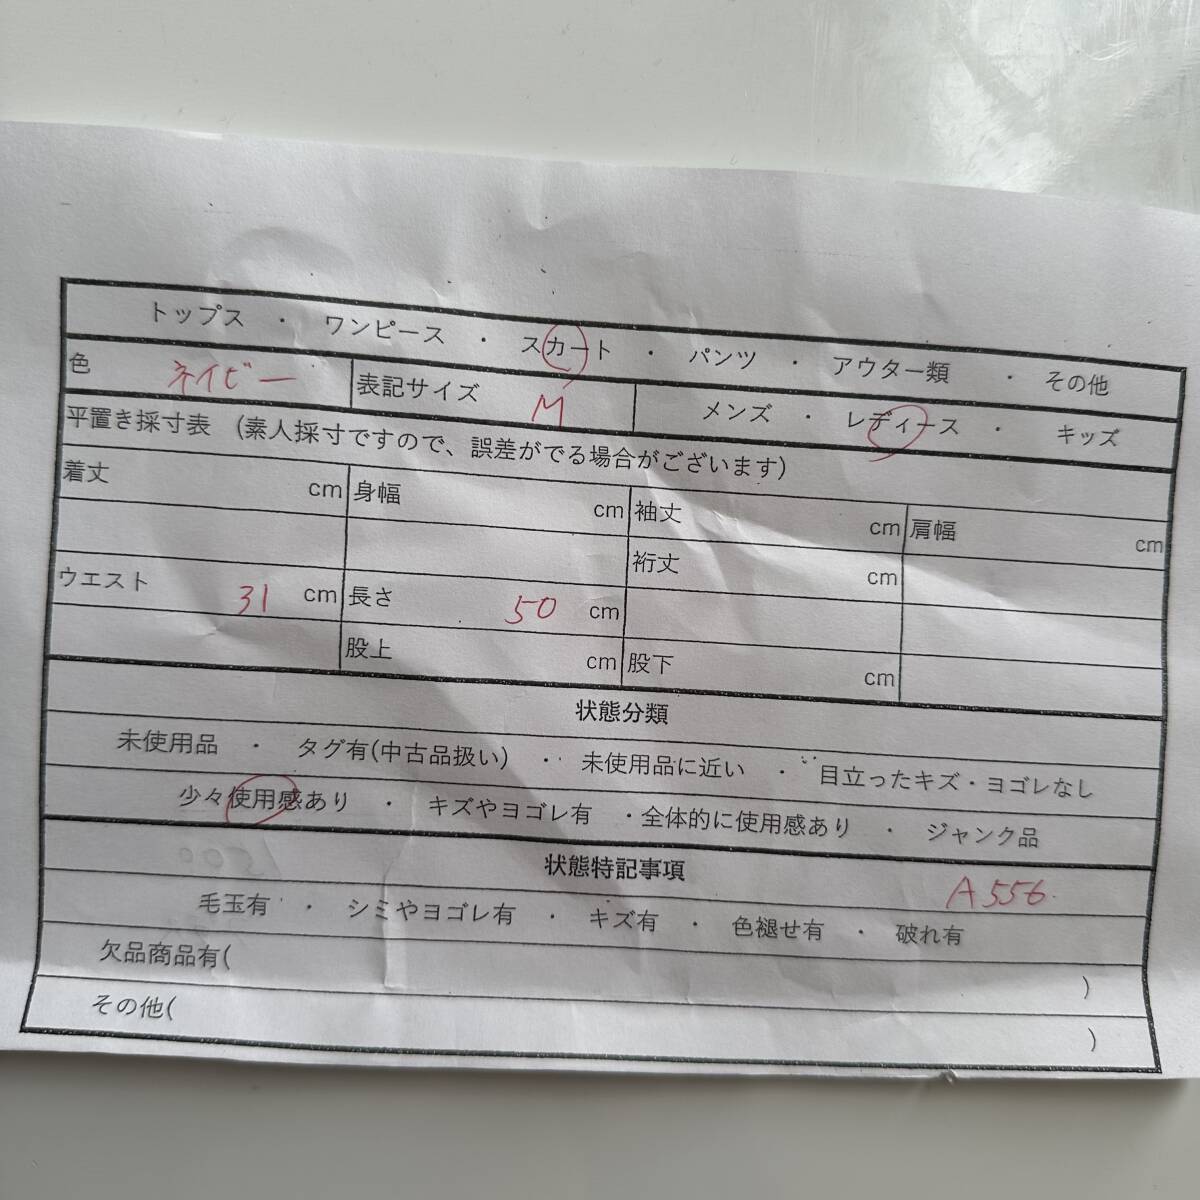 トップス ・ ワンピース ・ スカート ・ パンツ ・ アウター類 ・ その他
色 ネイビー 表記サイズ M メンズ ・ レディース ・ キッズ
平置き採寸表 (素人採寸ですので、誤差がでる場合がございます)
着丈 cm 身幅 cm 袖丈 cm 肩幅 cm
裄丈 cm
ウエスト 31 cm 長さ 50 cm
股上 cm 股下 cm
状態分類
未使用品 ・ タグ有(中古品扱い) ・ 未使用品に近い ・ 目立ったキズ・ヨゴレなし
少々使用感あり ・ キズやヨゴレ有 ・全体的に使用感あり ・ ジャンク品
1500 状態特記事項 A556.
毛玉有 ・ シミやヨゴレ有 ・ キズ有 ・ 色褪せ有 ・ 破れ有
欠品商品有( )
その他( )